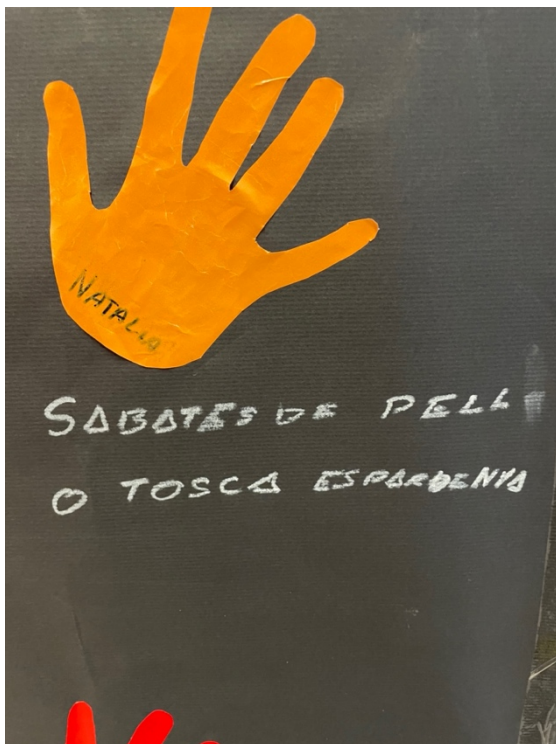 NATALIA
SABATES DE PELL
O TOSCA ESPARDENYA